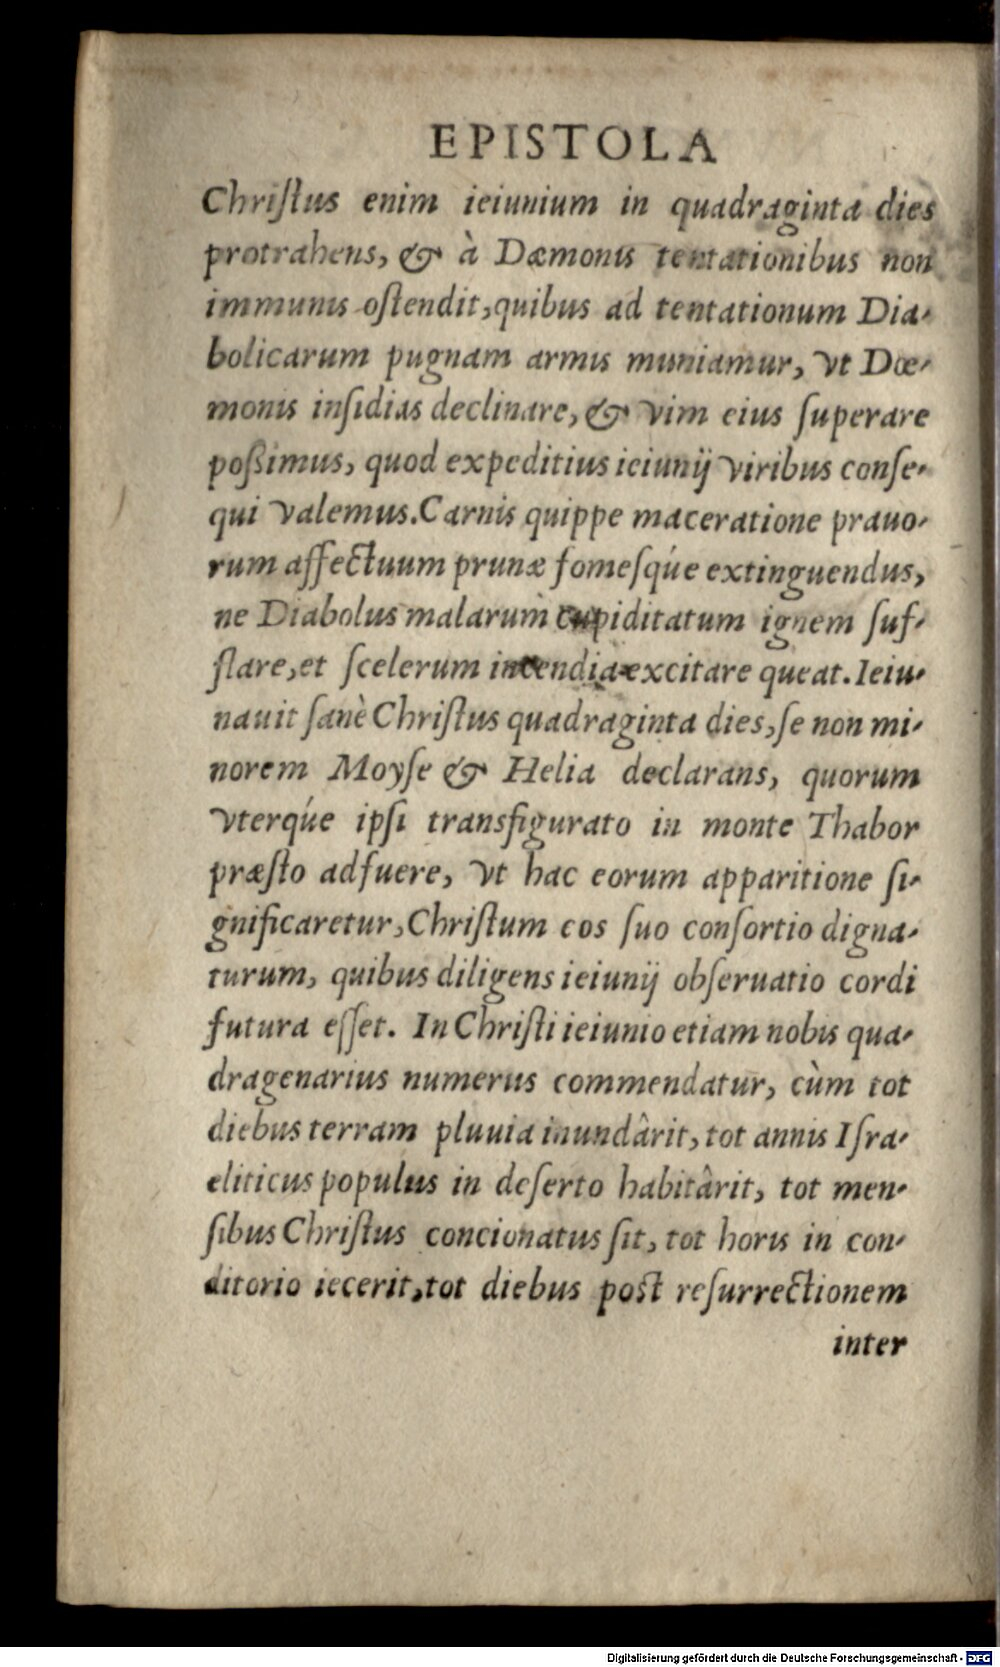 EPISTOLA
Chriſtus enim ieiunium in quadraginta dies
protrahens, & à Dæmonis tentationibus non
immunis oſtendit, quibus ad tentationum Dia-
bolicarum pugnam armis muniamur, vt Dœ-
monis inſidias declinare, & vim eius ſuperare
poßimus, quod expeditius ieiunij viribus conſe-
qui valemus. Carnis quippe maceratione prauo-
rum affectuum prunæ fomeſq́ue extinguendus,
ne Diabolus malarum cupiditatum ignem ſuf-
flare, et ſcelerum incendia excitare queat. Ieiu-
nauit ſanè Chriſtus quadraginta dies, ſe non mi-
norem Moyſe & Helia declarans, quorum
vterq́ue ipſi transfigurato in monte Thabor
præſto adfuere, vt hac eorum apparitione ſi-
gnificaretur, Chriſtum eos ſuo conſortio digna-
turum, quibus diligens ieiunij obſeruatio cordi
futura eſſet. In Chriſti ieiunio etiam nobis qua-
dragenarius numerus commendatur, cùm tot
diebus terram pluuia inundârit, tot annis Iſra-
eliticus populus in deſerto habitârit, tot men-
ſibus Chriſtus concionatus ſit, tot horis in con-
ditorio iecerit, tot diebus poſt reſurrectionem
inter
Digitalisierung gefördert durch die Deutsche Forschungsgemeinschaft - DFG